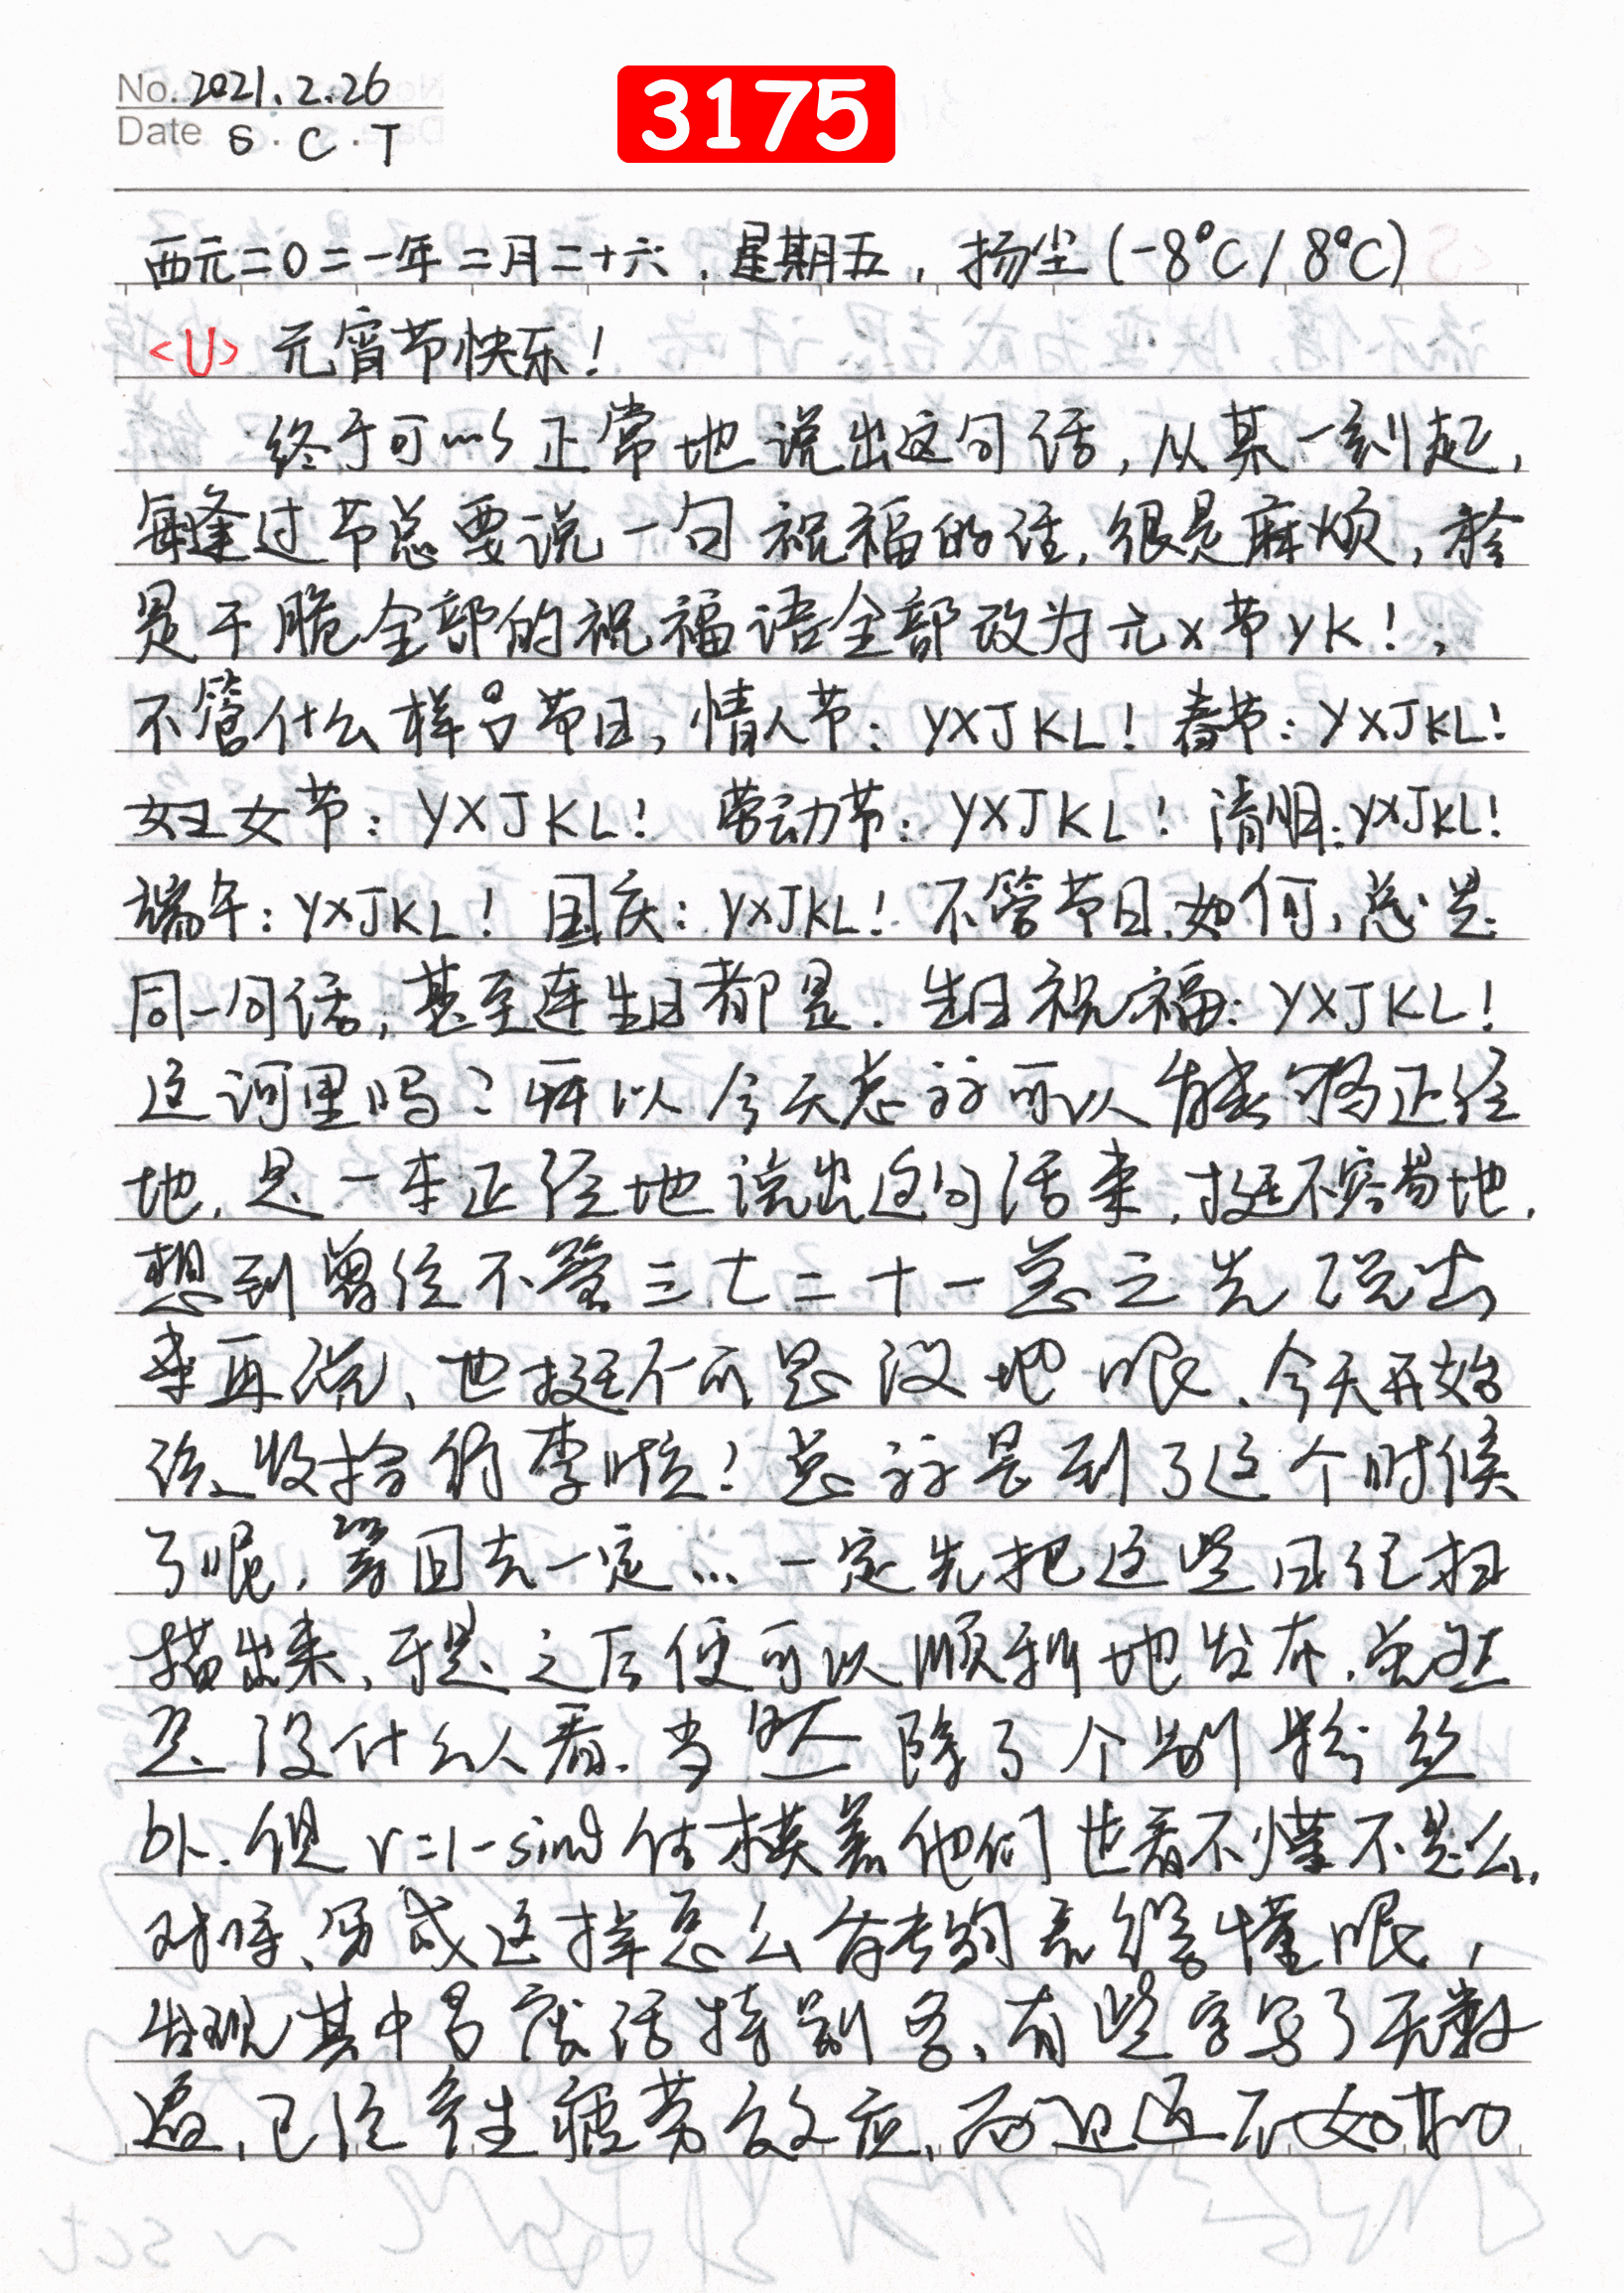 No. 2021.2.26
3175
Date S.C.T
西元二0二一年二月二十六，星期五，扬尘(-8°C/8°C)
<U> 元宵节快乐！
终于可以正常地说出这句话，从某一刻起，
每逢过节总要说一句祝福的话，很是麻烦，於
是干脆全部的祝福语全部改为元x节yk！，
不管什么样的节日，情人节：YXJKL！春节：YXJKL！
妇女节：YXJKL！劳动节：YXJKL！清明：YXJKL！
端午：YXJKL！国庆：YXJKL！不管节日如何，总是
同一句话，甚至连生日都是．生日祝福：YXJKL！
这河里吗？所以今天总该可以能够正经
地，是一本正经地说出这句话来，挺不容易地，
想到曾经不管三七二十一总之先说出
来再说、也挺不可思议地呢、今天开始
该收拾行李啦！总该是到了这个时候
了呢，等回去一定…一定先把这些日记扫
描出来、于是之后便可以顺利地发布．虽然
是没什么人看．当然除了个别粉丝
外．但r=1-sinθ估摸着他们也看不懂不是么，
对呀、写成这样怎么能够看得懂呢，
发现其中另废话特别多、有些字写了无数
遍、已经产生疲劳效应、而且还不如和